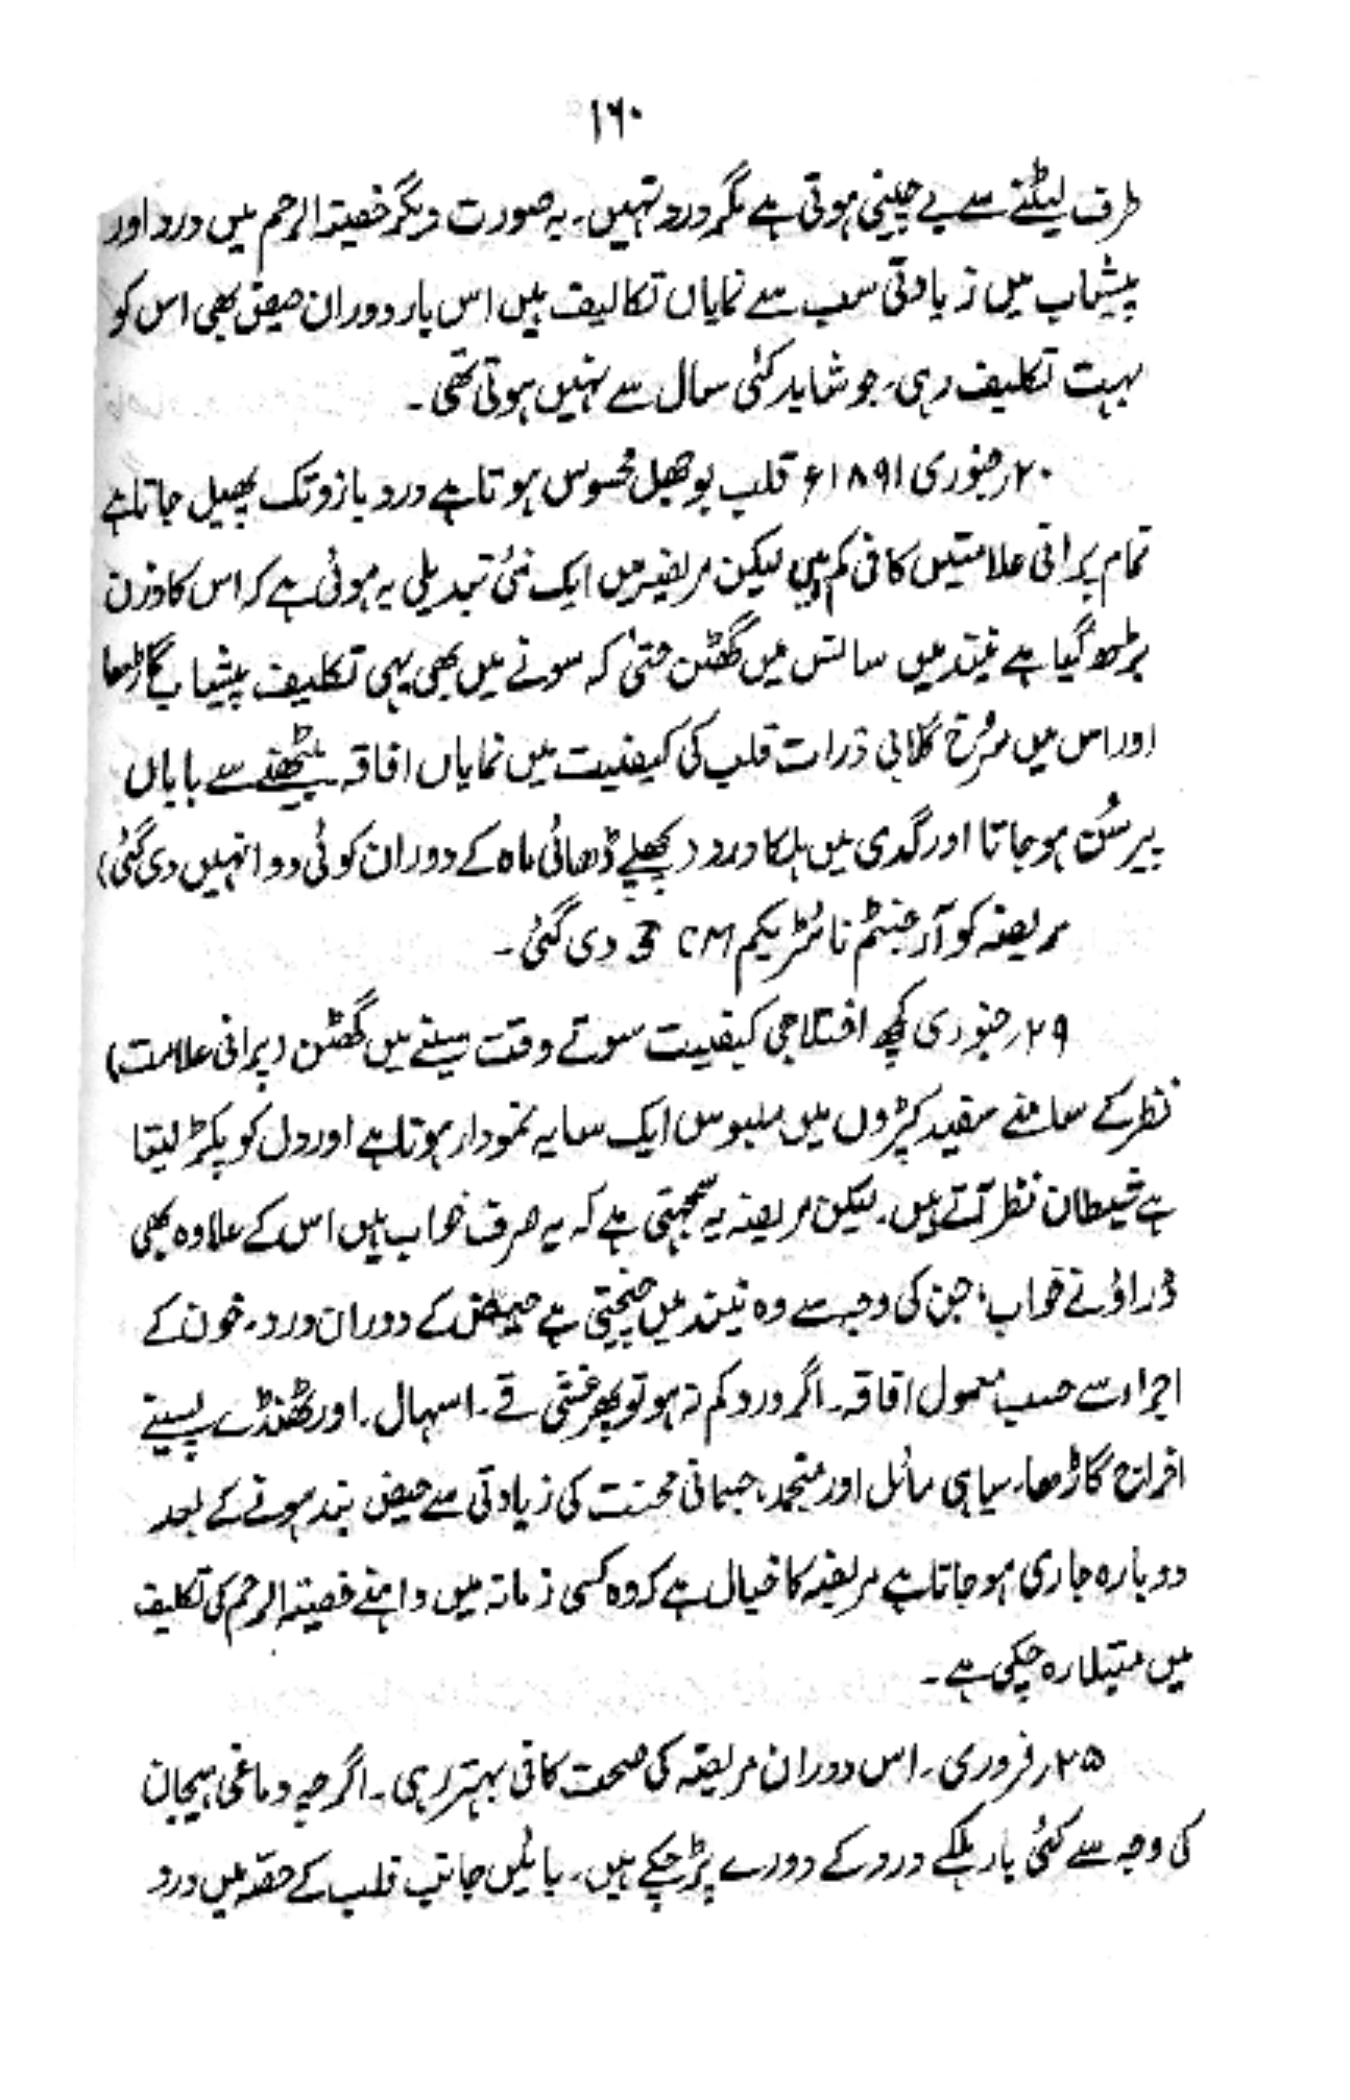 ۱۶۰
طرف لیٹنے سے بے چینی ہوتی ہے مگر درد نہیں۔ بہ صورت دیگر خصیتہ الرحم میں درد اور
پیشاب میں زیادتی سب سے نمایاں تکالیف ہیں اس بار دوران حیض بھی اس کو
بہت تکلیف رہی۔ جو شاید کئی سال سے نہیں ہوتی تھی۔
۲۰ر جنوری ۱۸۹۱ء قلب بوجھل محسوس ہوتا ہے درد بازو تک پھیل جاتا ہے
تمام پرانی علامتیں کافی کم ہیں لیکن مریضہ میں ایک نئی تبدیلی یہ ہوئی ہے کہ اس کا وزن
بڑھ گیا ہے نیند میں سانس میں گھٹن حتیٰ کہ سونے میں بھی یہی تکلیف پیشاب گاڑھا
اور اس میں سرخ گلابی ذرات قلب کی کیفیت میں نمایاں افاقہ بیٹھنے سے بایاں
پیر سُن ہو جاتا اور گدی میں ہلکا درد (پچھلے ڈھائی ماہ کے دوران کوئی دوا نہیں دی گئی)
مریضہ کو آرجنٹم نائٹریکم 3 CM دی گئی۔
۲۹ر جنوری کچھ اختلاجی کیفیت سوتے وقت سینے میں گھٹن (پرانی علامت)
نظر کے سامنے سفید کپڑوں میں ملبوس ایک سایہ نمودار ہوتا ہے اور دل کو پکڑ لیتا
ہے شیطان نظر آتے ہیں۔ لیکن مریضہ یہ سمجھتی ہے کہ یہ صرف خواب ہیں اس کے علاوہ بھی
ڈراؤنے خواب، جن کی وجہ سے وہ نیند میں چیختی ہے حیض کے دوران درد۔ خون کے
اجراء سے حسب معمول افاقہ۔ اگر درد کم نہ ہو تو پھر غشی قے۔ اسہال۔ اور ٹھنڈے پسینے
اخراج گاڑھا، سیاہی مائل اور منجمد، جسمانی محنت کی زیادتی سے حیض بند ہونے کے بعد
دوبارہ جاری ہو جاتا ہے مریضہ کا خیال ہے کہ وہ کسی زمانہ میں داہنے خصیتہ الرحم کی تکلیف
میں مبتلا رہ چکی ہے۔
۲۵ر فروری۔ اس دوران مریضہ کی صحت کافی بہتر رہی۔ اگر چہ دماغی ہیجان
کی وجہ سے کئی بار ہلکے درد کے دورے پڑ چکے ہیں۔ بائیں جانب قلب کے حصّہ میں درد